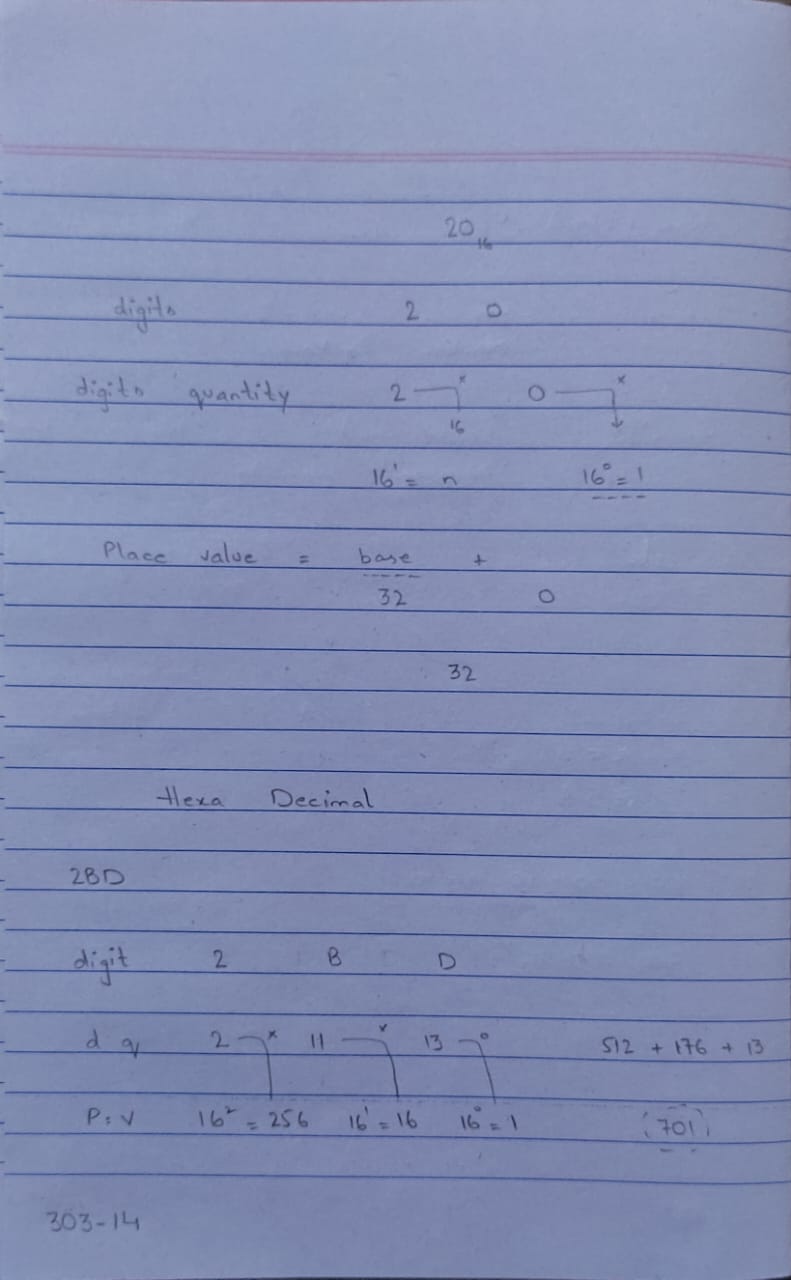 20₁₆
digits 2 0
digits quantity 2 × 0 ×
16
16¹ = n 16⁰ = 1
Place value = base +
32 0
32
Hexa Decimal
2BD
digit 2 B D
d q 2 × 11 × 13 ° 512 + 176 + 13
P:V 16² = 256 16¹ = 16 16⁰ = 1 (701)
303-14